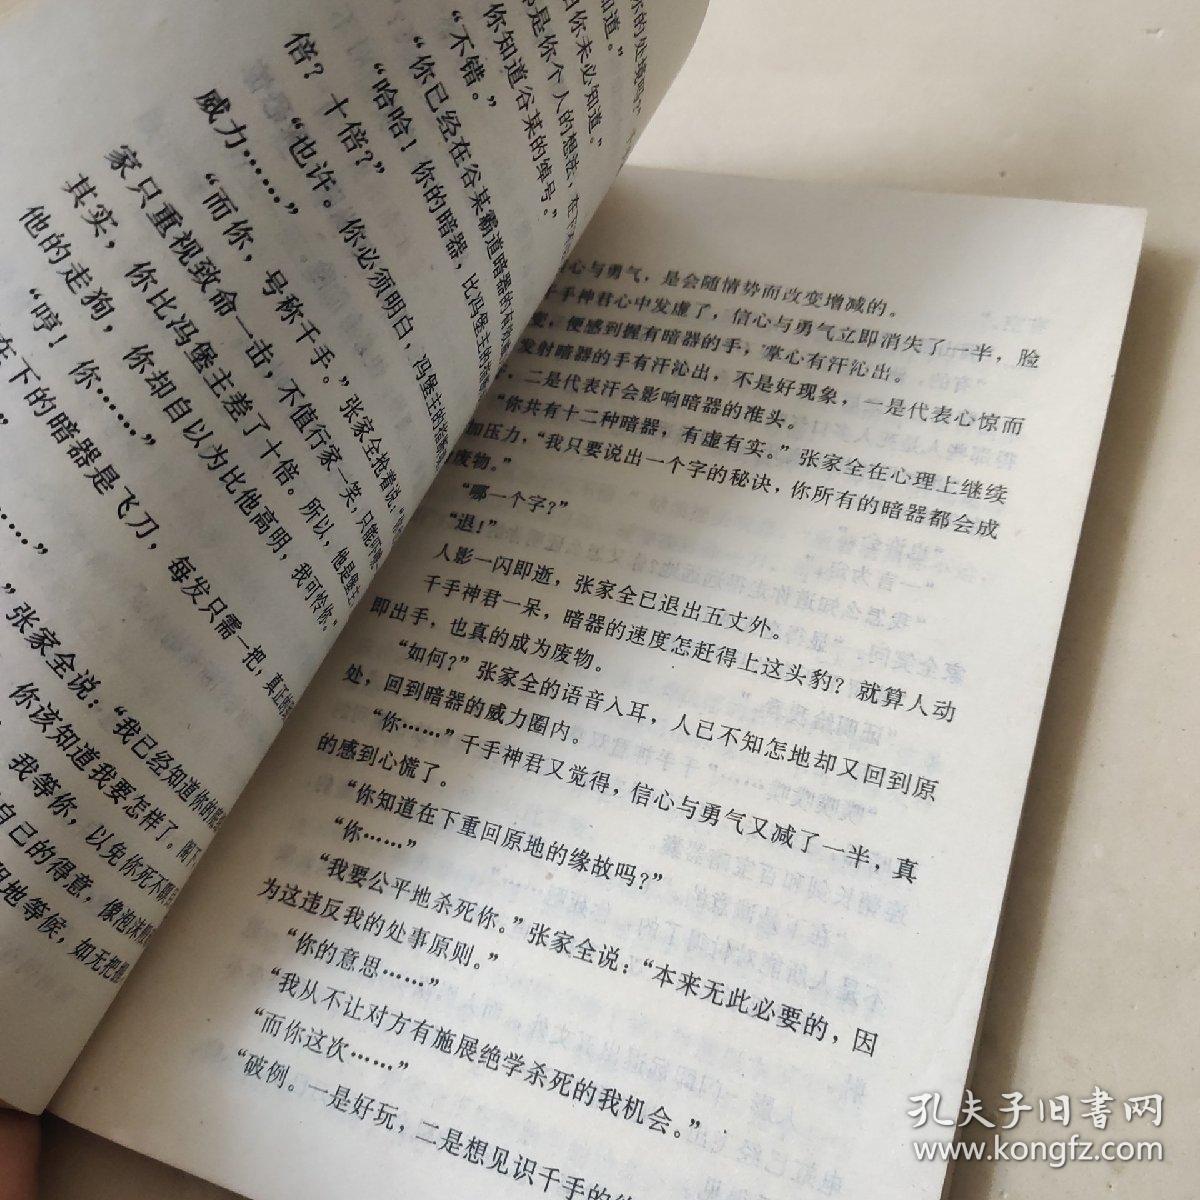 你的处境
知道。”
你未必知道。”
是你个人的想法，在
你知道谷某的绰号。”
“不错。”
“你已经在谷某霸道暗器的
“哈哈！你的暗器，比冯堡主的
倍？十倍？”
“也许。你必须明白，冯堡主的
威力……”
“而你，号称千手。”张家全抢着说，
家只重视致命一击，不值行家一笑，只能
其实，你比冯堡主差了十倍。所以，他是
他的走狗，你却自以为比他高明，我可怜你。”
“哼！你……”
在下的暗器是飞刀，每发只需一把，真正
……”
”张家全说：“我已经知道你的
你该知道我要怎样了。阁下
我等你，以免你死不瞑目
自己的得意，像泡沫
地等候，如无把握
心与勇气，是会随情势而改变增减的。
千手神君心中发虚了，信心与勇气立即消失了一半，脸
变，便感到握有暗器的手，掌心有汗沁出。
发射暗器的手有汗沁出，不是好现象，一是代表心惊而
，二是代表汗会影响暗器的准头。
“你共有十二种暗器，有虚有实。”张家全在心理上继续
加压力，“我只要说出一个字的秘诀，你所有的暗器都会成
废物。”
“哪一个字？”
“退！”
人影一闪即逝，张家全已退出五丈外。
千手神君一呆，暗器的速度怎赶得上这头豹？就算人动
即出手，也真的成为废物。
“如何？”张家全的语音入耳，人已不知怎地却又回到原
处，回到暗器的威力圈内。
“你……”千手神君又觉得，信心与勇气又减了一半，真
的感到心慌了。
“你知道在下重回原地的缘故吗？”
“你……”
“我要公平地杀死你。”张家全说：“本来无此必要的，因
为这违反我的处事原则。”
“你的意思……”
“我从不让对方有施展绝学杀死的我机会。”
“而你这次……”
“破例。一是好玩，二是想见识千手的
孔夫子旧书网
www.kongfz.com